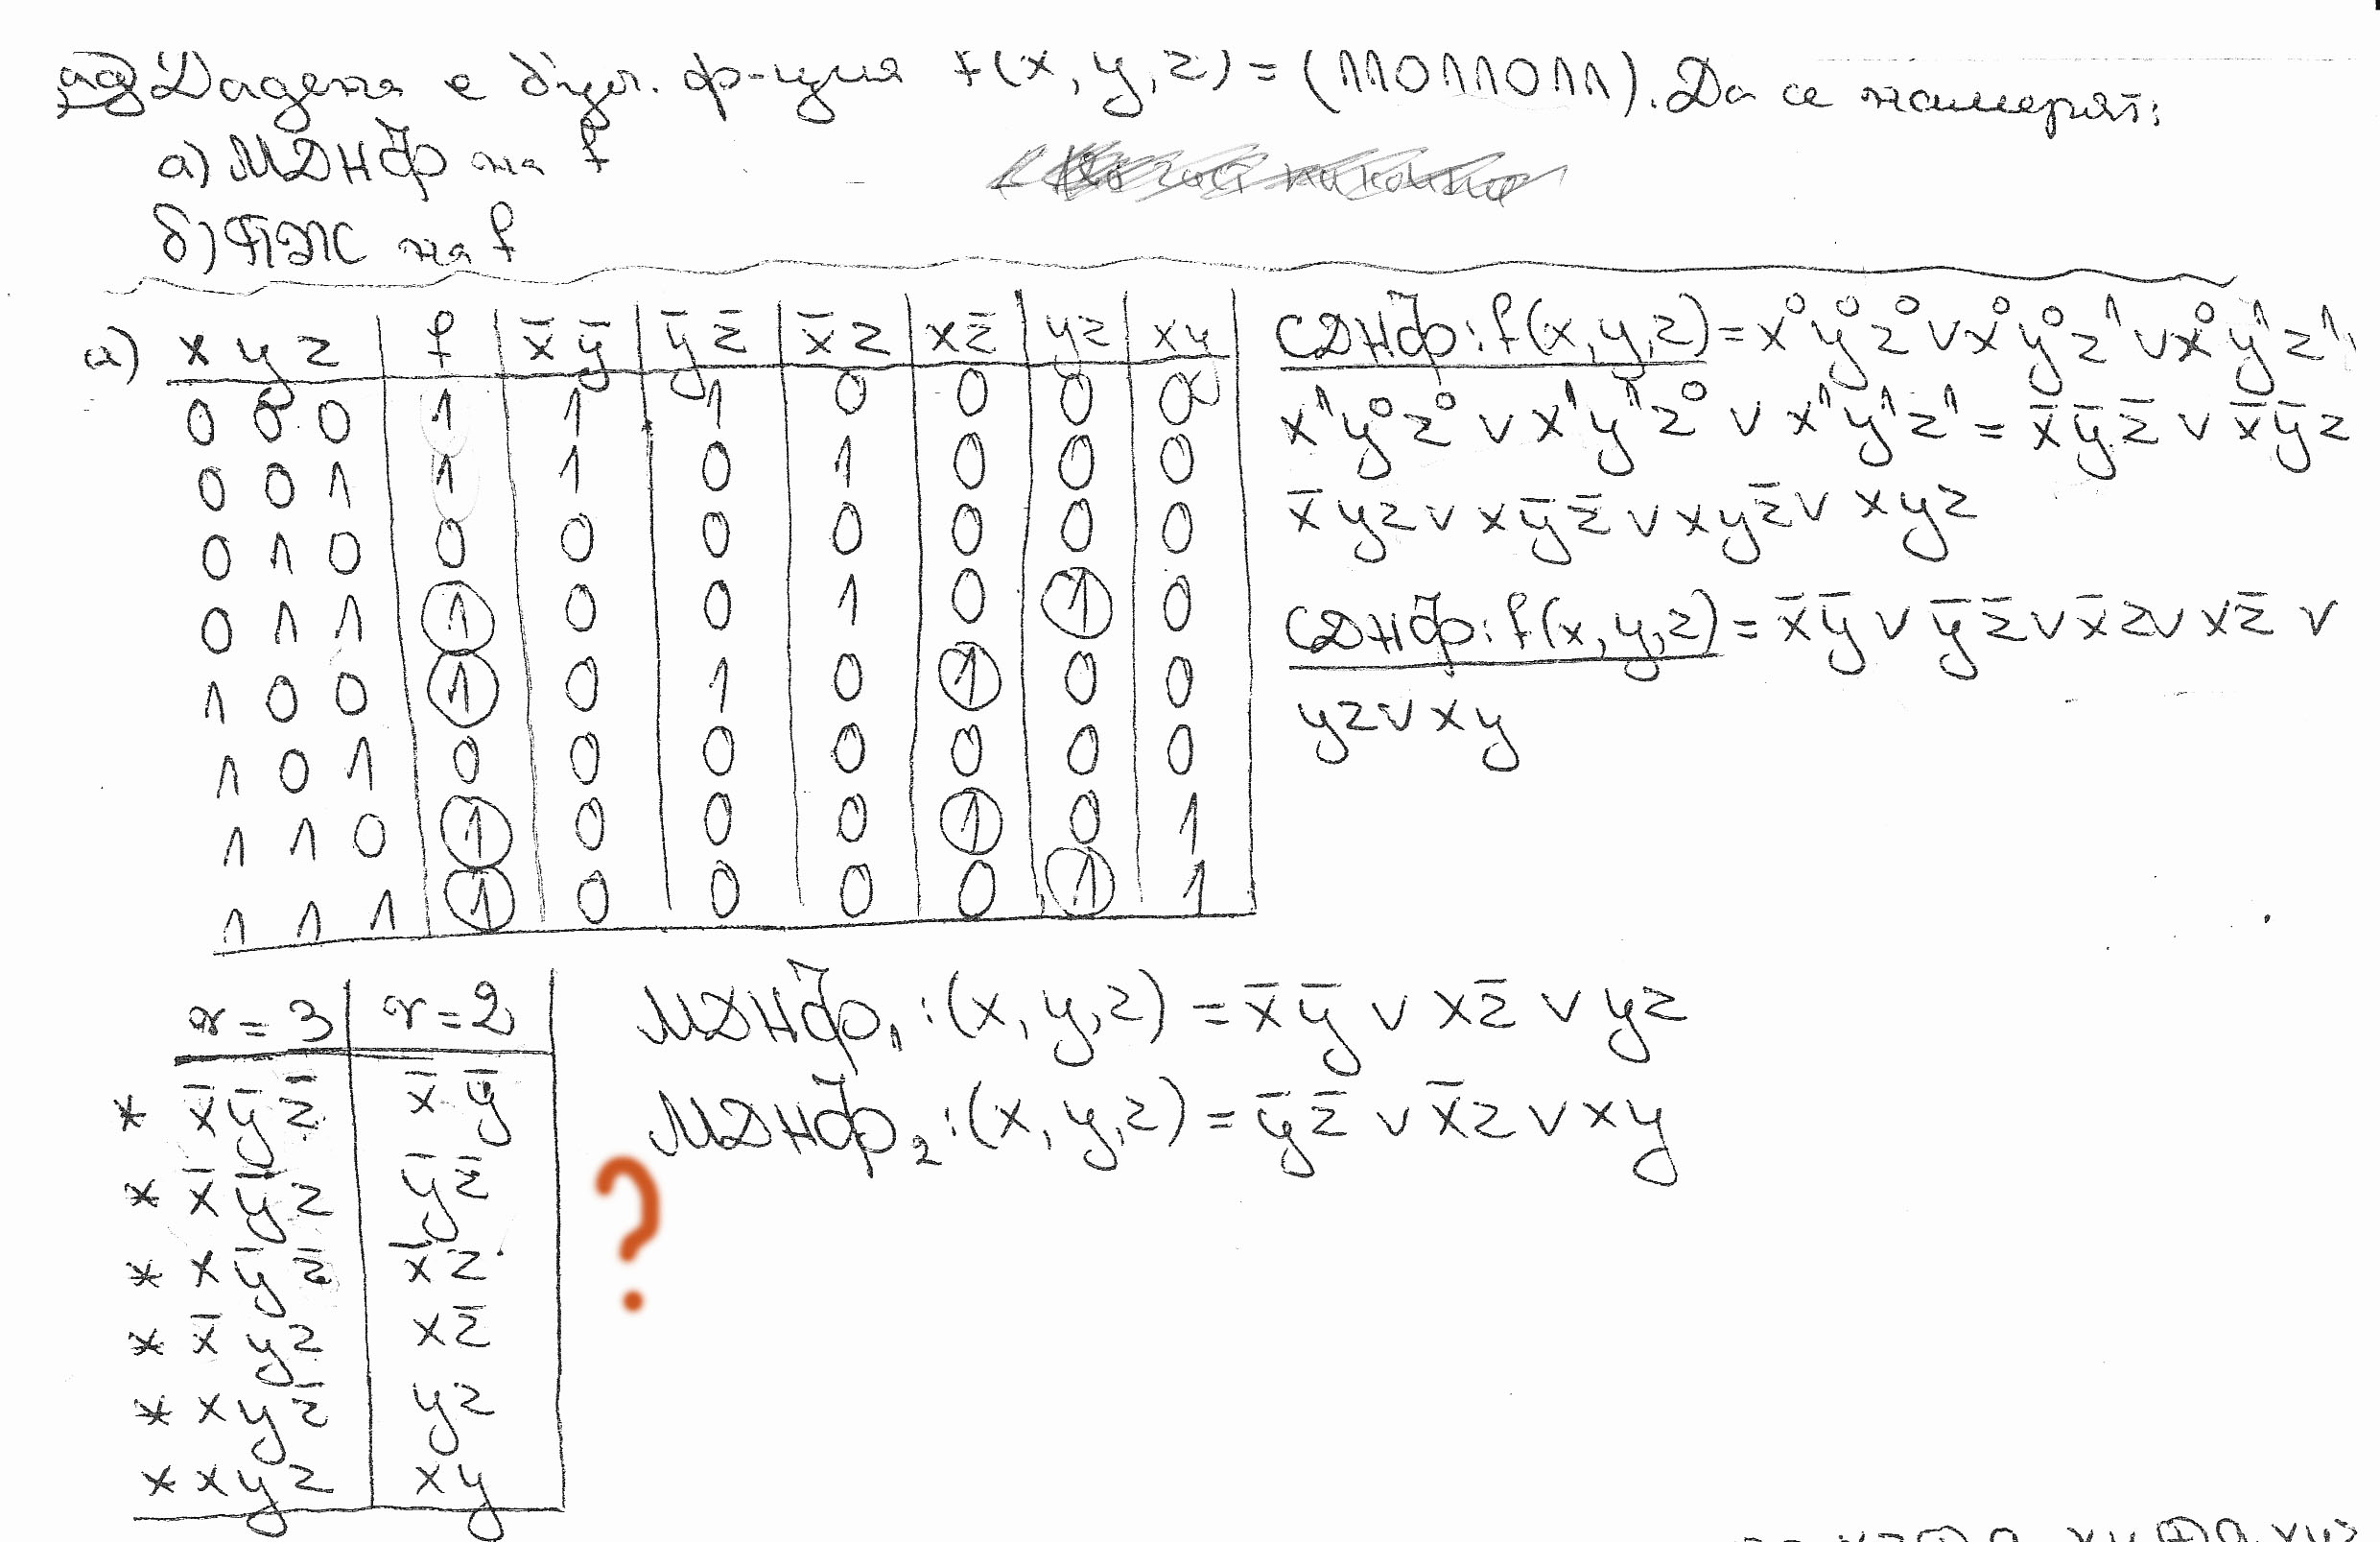 Дадена е бул. ф-ция f(x, y, z) = (11011011). Да се намерят:
а) МДНФ на f
б) ПЖ на f
а) x y z | f | x̄ ȳ | ȳ z̄ | x̄ z | x z̄ | y z | x y
0 0 0 | 1 | 1 | 1 | 0 | 0 | 0 | 0
0 0 1 | 1 | 1 | 0 | 1 | 0 | 0 | 0
0 1 0 | 0 | 0 | 0 | 0 | 0 | 0 | 0
0 1 1 | 1 | 0 | 0 | 1 | 0 | 1 | 0
1 0 0 | 1 | 0 | 1 | 0 | 1 | 0 | 0
1 0 1 | 0 | 0 | 0 | 0 | 0 | 0 | 0
1 1 0 | 1 | 0 | 0 | 0 | 1 | 0 | 1
1 1 1 | 1 | 0 | 0 | 0 | 0 | 1 | 1
СДНФ: f(x, y, z) = x⁰y⁰z⁰ ∨ x⁰y⁰z¹ ∨ x⁰y¹z¹
x¹y⁰z⁰ ∨ x¹y¹z⁰ ∨ x¹y¹z¹ = x̄ȳz̄ ∨ x̄ȳz
x̄yz ∨ xȳz̄ ∨ xyz̄ ∨ xyz
СДНФ: f(x, y, z) = x̄ȳ ∨ ȳz̄ ∨ x̄z ∨ xz̄ ∨
yz ∨ xy
r = 3 | r = 2
* x̄ȳz̄ | x̄ȳ
* x̄ȳz | ȳz̄
* xȳz̄ | x̄z
* x̄yz | xz̄
* xyz̄ | yz
* xyz | xy
МДНФ₁: (x, y, z) = x̄ȳ ∨ xz̄ ∨ yz
МДНФ₂: (x, y, z) = ȳz̄ ∨ x̄z ∨ xy
?